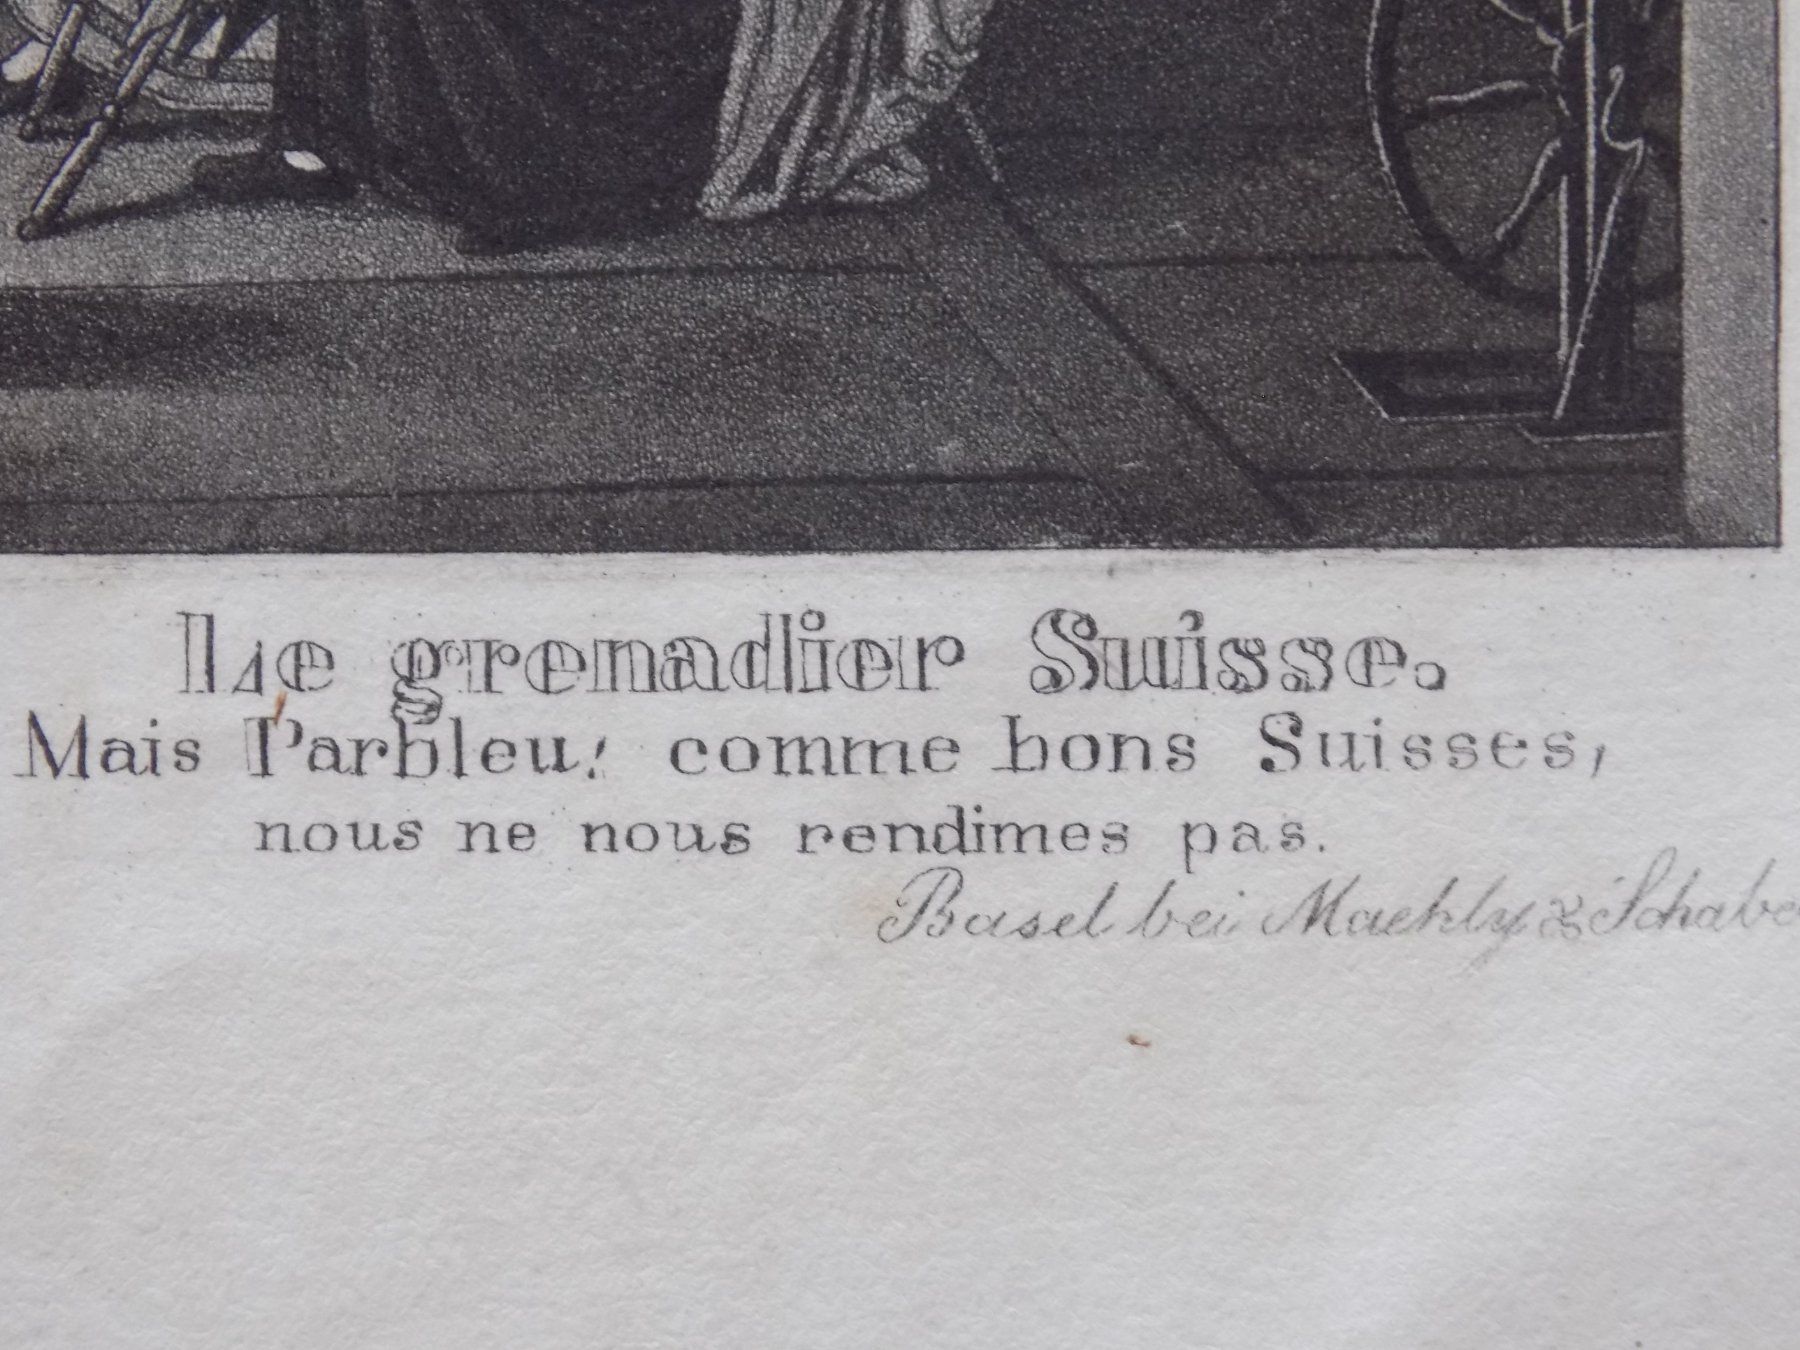 Le grenadier Suisse.
Mais Parbleu! comme bons Suisses,
nous ne nous rendimes pas.
Basel bei Maehly & Schabe